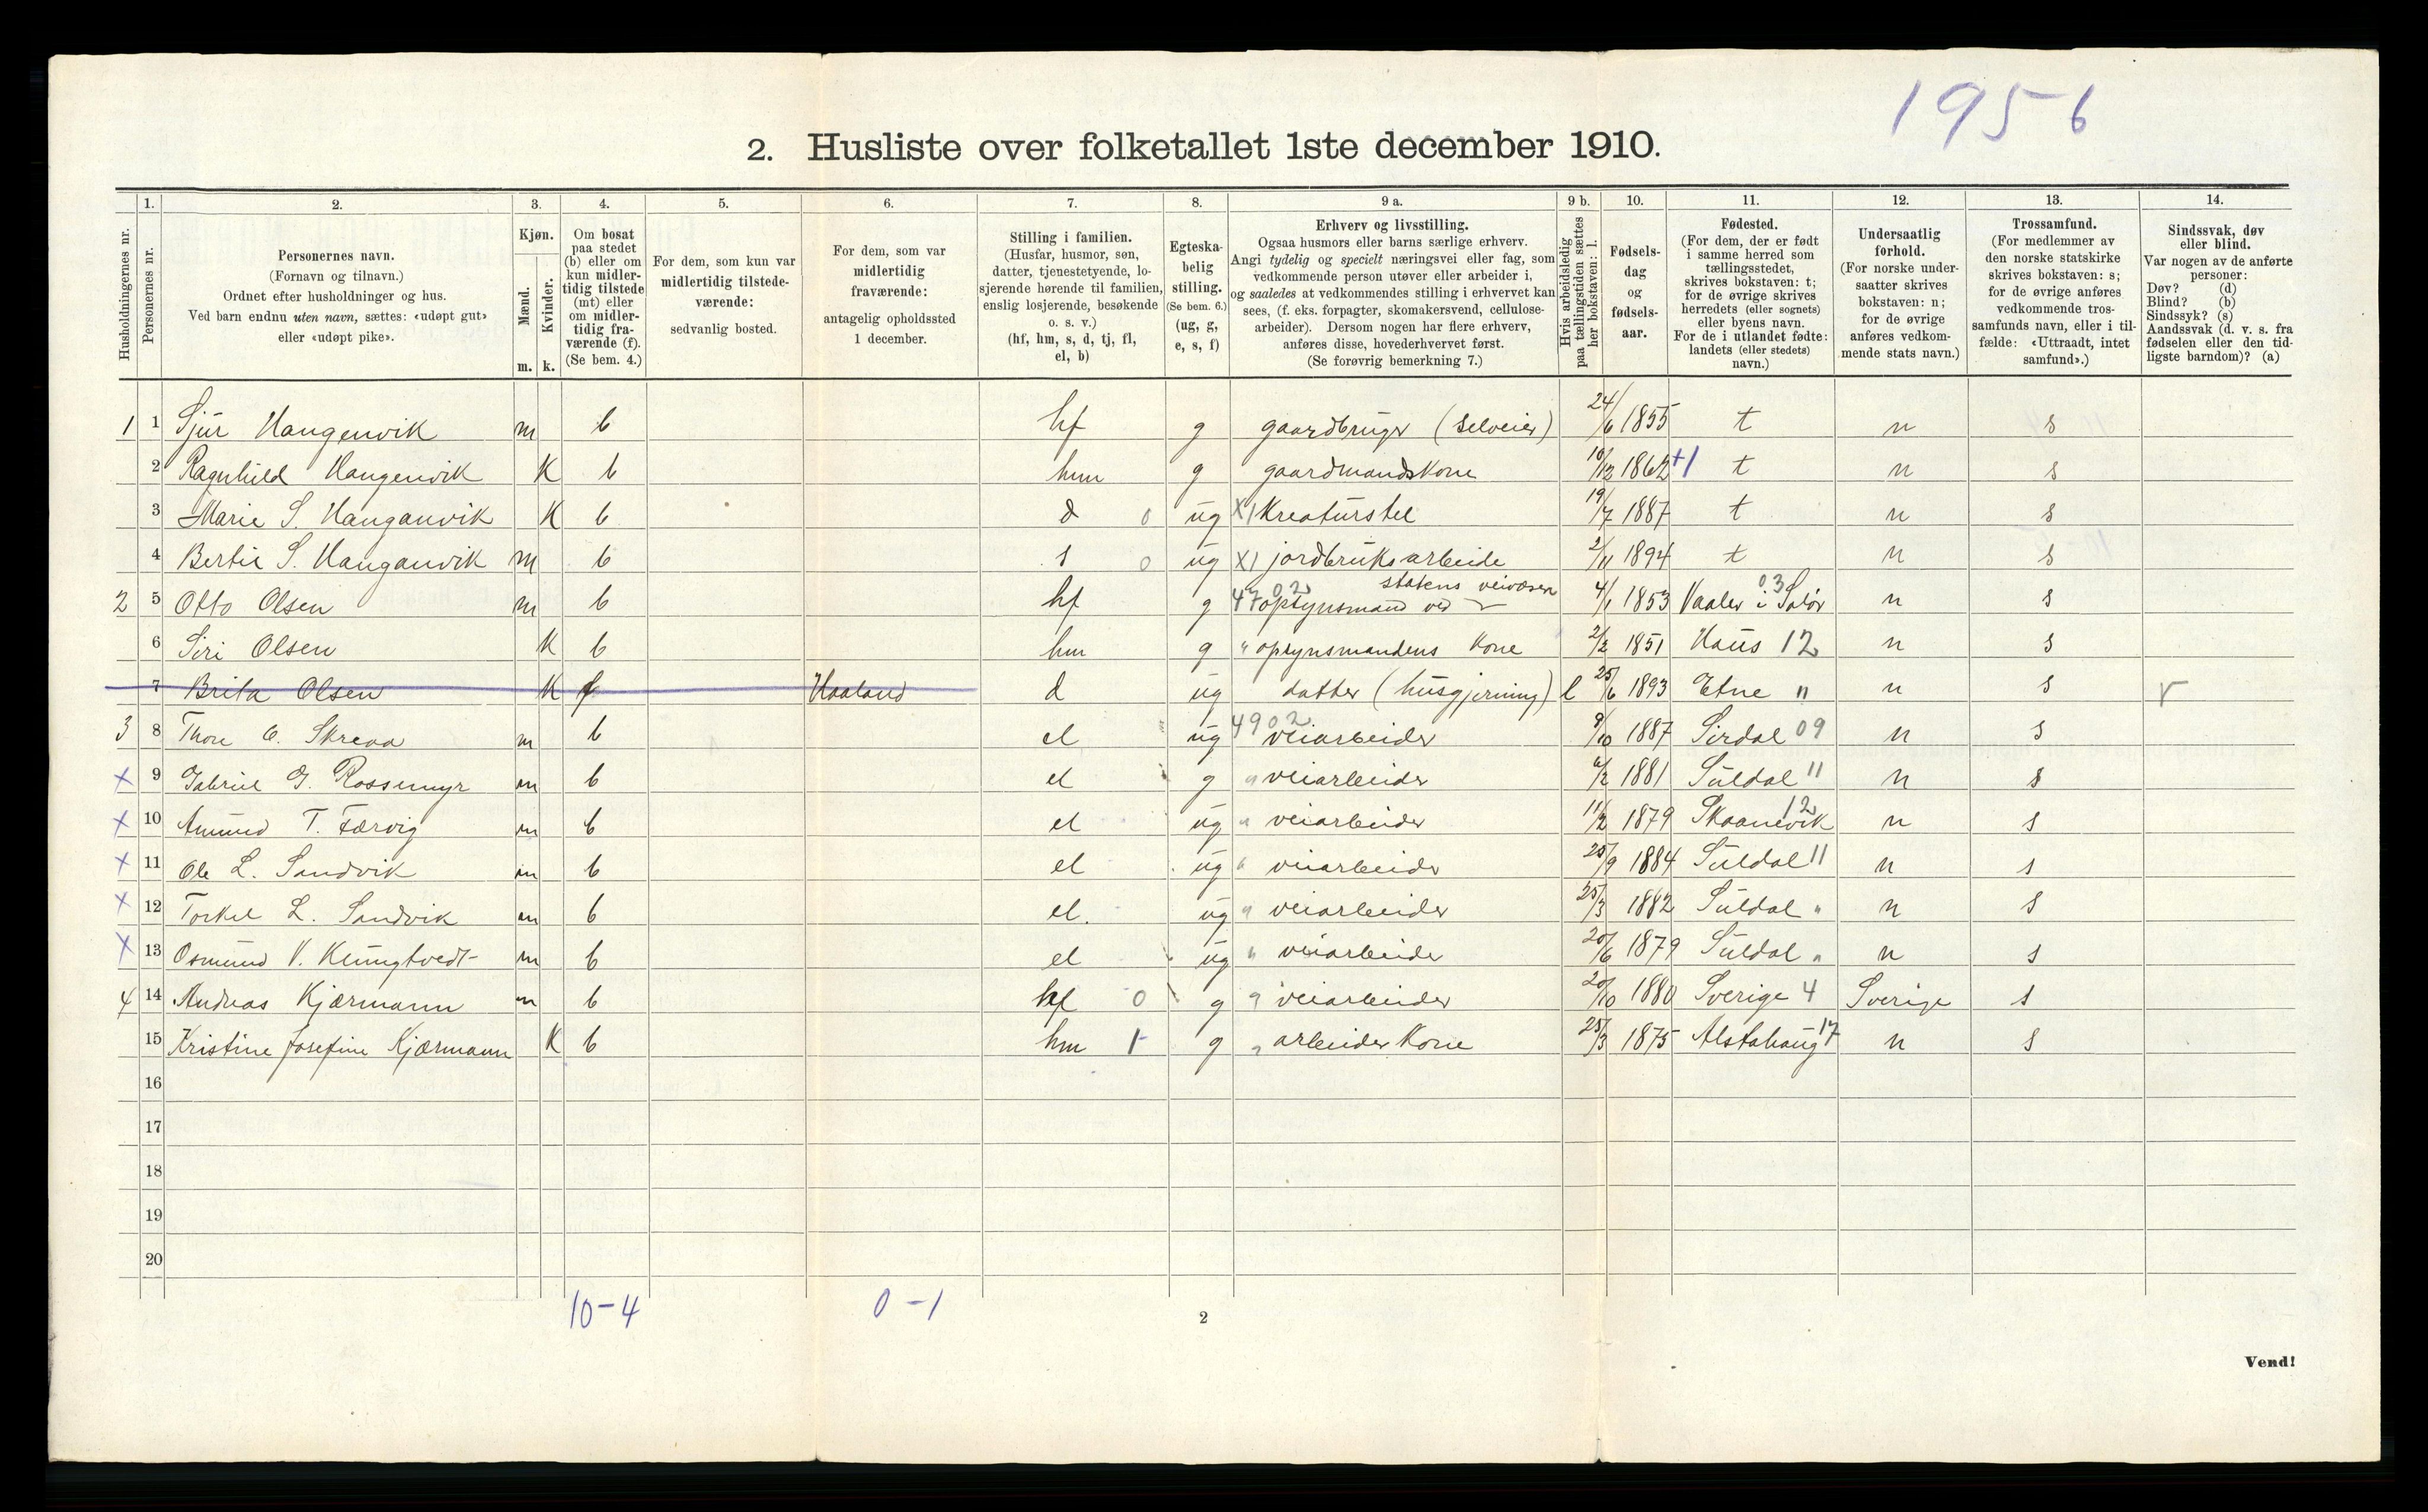 1956
2. Husliste over folketallet 1ste december 1910.
Husholdningernes nr.
1.
Personernes nr.
2.
Personernes navn.
(Fornavn og tilnavn.)
Ordnet efter husholdninger og hus.
Ved barn endnu uten navn, sættes: «udøpt gut»
eller «udøpt pike».
3.
Kjøn.
Mænd.
Kvinder.
m. k.
4.
Om bosat
paa stedet
(b) eller om
kun midler-
tidig tilstede
(mt) eller
om midler-
tidig fra-
værende (f).
(Se bem. 4.)
5.
For dem, som kun var
midlertidig tilstede-
værende:
sedvanlig bosted.
6.
For dem, som var
midlertidig
fraværende:
antagelig opholdssted
1 december.
7.
Stilling i familien.
(Husfar, husmor, søn,
datter, tjenestetyende, lo-
sjerende hørende til familien,
enslig losjerende, besøkende
o. s. v.)
(hf, hm, s, d, tj, fl,
el, b)
8.
Egteska-
belig
stilling.
(Se bem. 6.)
(ug, g,
e, s, f)
9 a.
Erhverv og livsstilling.
Ogsaa husmors eller barns særlige erhverv.
Angi tydelig og specielt næringsvei eller fag, som
vedkommende person utøver eller arbeider i,
og saaledes at vedkommendes stilling i erhvervet kan
sees, (f. eks. forpagter, skomakersvend, cellulose-
arbeider). Dersom nogen har flere erhverv,
anføres disse, hovederhvervet først.
(Se forøvrig bemerkning 7.)
9 b.
Hvis arbeidsledig
paa tællingstiden sættes
her bokstaven: l.
10.
Fødsels-
dag
og
fødsels-
aar.
11.
Fødested.
(For dem, der er født
i samme herred som
tællingsstedet,
skrives bokstaven: t;
for de øvrige skrives
herredets (eller sognets)
eller byens navn.
For de i utlandet fødte:
landets (eller stedets)
navn.)
12.
Undersaatlig
forhold.
(For norske under-
saatter skrives
bokstaven: n;
for de øvrige
anføres vedkom-
mende stats navn.)
13.
Trossamfund.
(For medlemmer av
den norske statskirke
skrives bokstaven: s;
for de øvrige anføres
vedkommende tros-
samfunds navn, eller i til-
fælde: «Uttraadt, intet
samfund».)
14.
Sindssvak, døv
eller blind.
Var nogen av de anførte
personer:
Døv? (d)
Blind? (b)
Sindssyk? (s)
Aandssvak (d. v. s. fra
fødselen eller den tid-
ligste barndom)? (a)
1 1 Sjur Haugenvik m b hf g gaardbruger (selveier) 24/6 1855 t n s
2 Ragnhild Haugenvik K b hm g gaardmandskone 10/12 1862 +1 t n s
3 Marie S. Hauganvik K b d 0 ug X1 Kreaturstel 19/7 1887 t n s
4 Bertil S. Hauganvik m b s 0 ug X1 jordbruksarbeide 2/11 1894 t n s
2 5 Otto Olsen m b hf g 4702 opsynsmand ved statens veivæsen 4/1 1853 Vaaler i Solør 03 n s
6 Siri Olsen K b hm g " opsynsmandens Kone 2/2 1851 Haus 12 n s
7 Brita Olsen K f Haaland d ug datter (husgjerning) l 25/6 1893 Etne " n s
3 8 Thore O. Skreaa m b el ug 4902 veiarbeider 9/10 1887 Sirdal 09 n s
x 9 Gabriel G. Rossemyr m b el g " veiarbeider 6/2 1881 Suldal 11 n s
x 10 Amund T. Færvig m b el ug " veiarbeider 11/2 1879 Skaanevik 12 n s
x 11 Ole L. Sandvik m b el ug " veiarbeider 25/9 1884 Suldal 11 n s
x 12 Torkel L. Sandvik m b el. ug " veiarbeider 25/3 1882 Suldal " n s
x 13 Osmund V. Klungtvedt m b el ug " veiarbeider 20/6 1879 Suldal " n s
4 14 Andreas Kjærmann m b hf 0 g " veiarbeider 20/10 1880 Sverige 4 Sverige s
15 Kristine Josefine Kjærmann K b hm 1 g " arbeider Kone 25/3 1875 Alstahaug 17 n s
16
17
18
19
20
10-4 0-1
2
Vend!